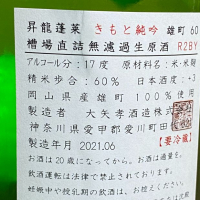 昇龍蓬莱 きもと純吟 雄町 60
槽場直詰無濾過生原酒 R2BY
アルコール分:17度 原材料名:米・米麹
精米歩合:60% 日本酒度:+3
岡山県産雄町100%使用
製造者 大矢孝酒造株式会社
神奈川県愛甲郡愛川町田
製造年月 2021.06 【要冷蔵】
お酒は20歳になってから。お酒は適量を。
飲酒運転は法律で禁止されております。
妊娠中や授乳期の飲酒は、お控えください。